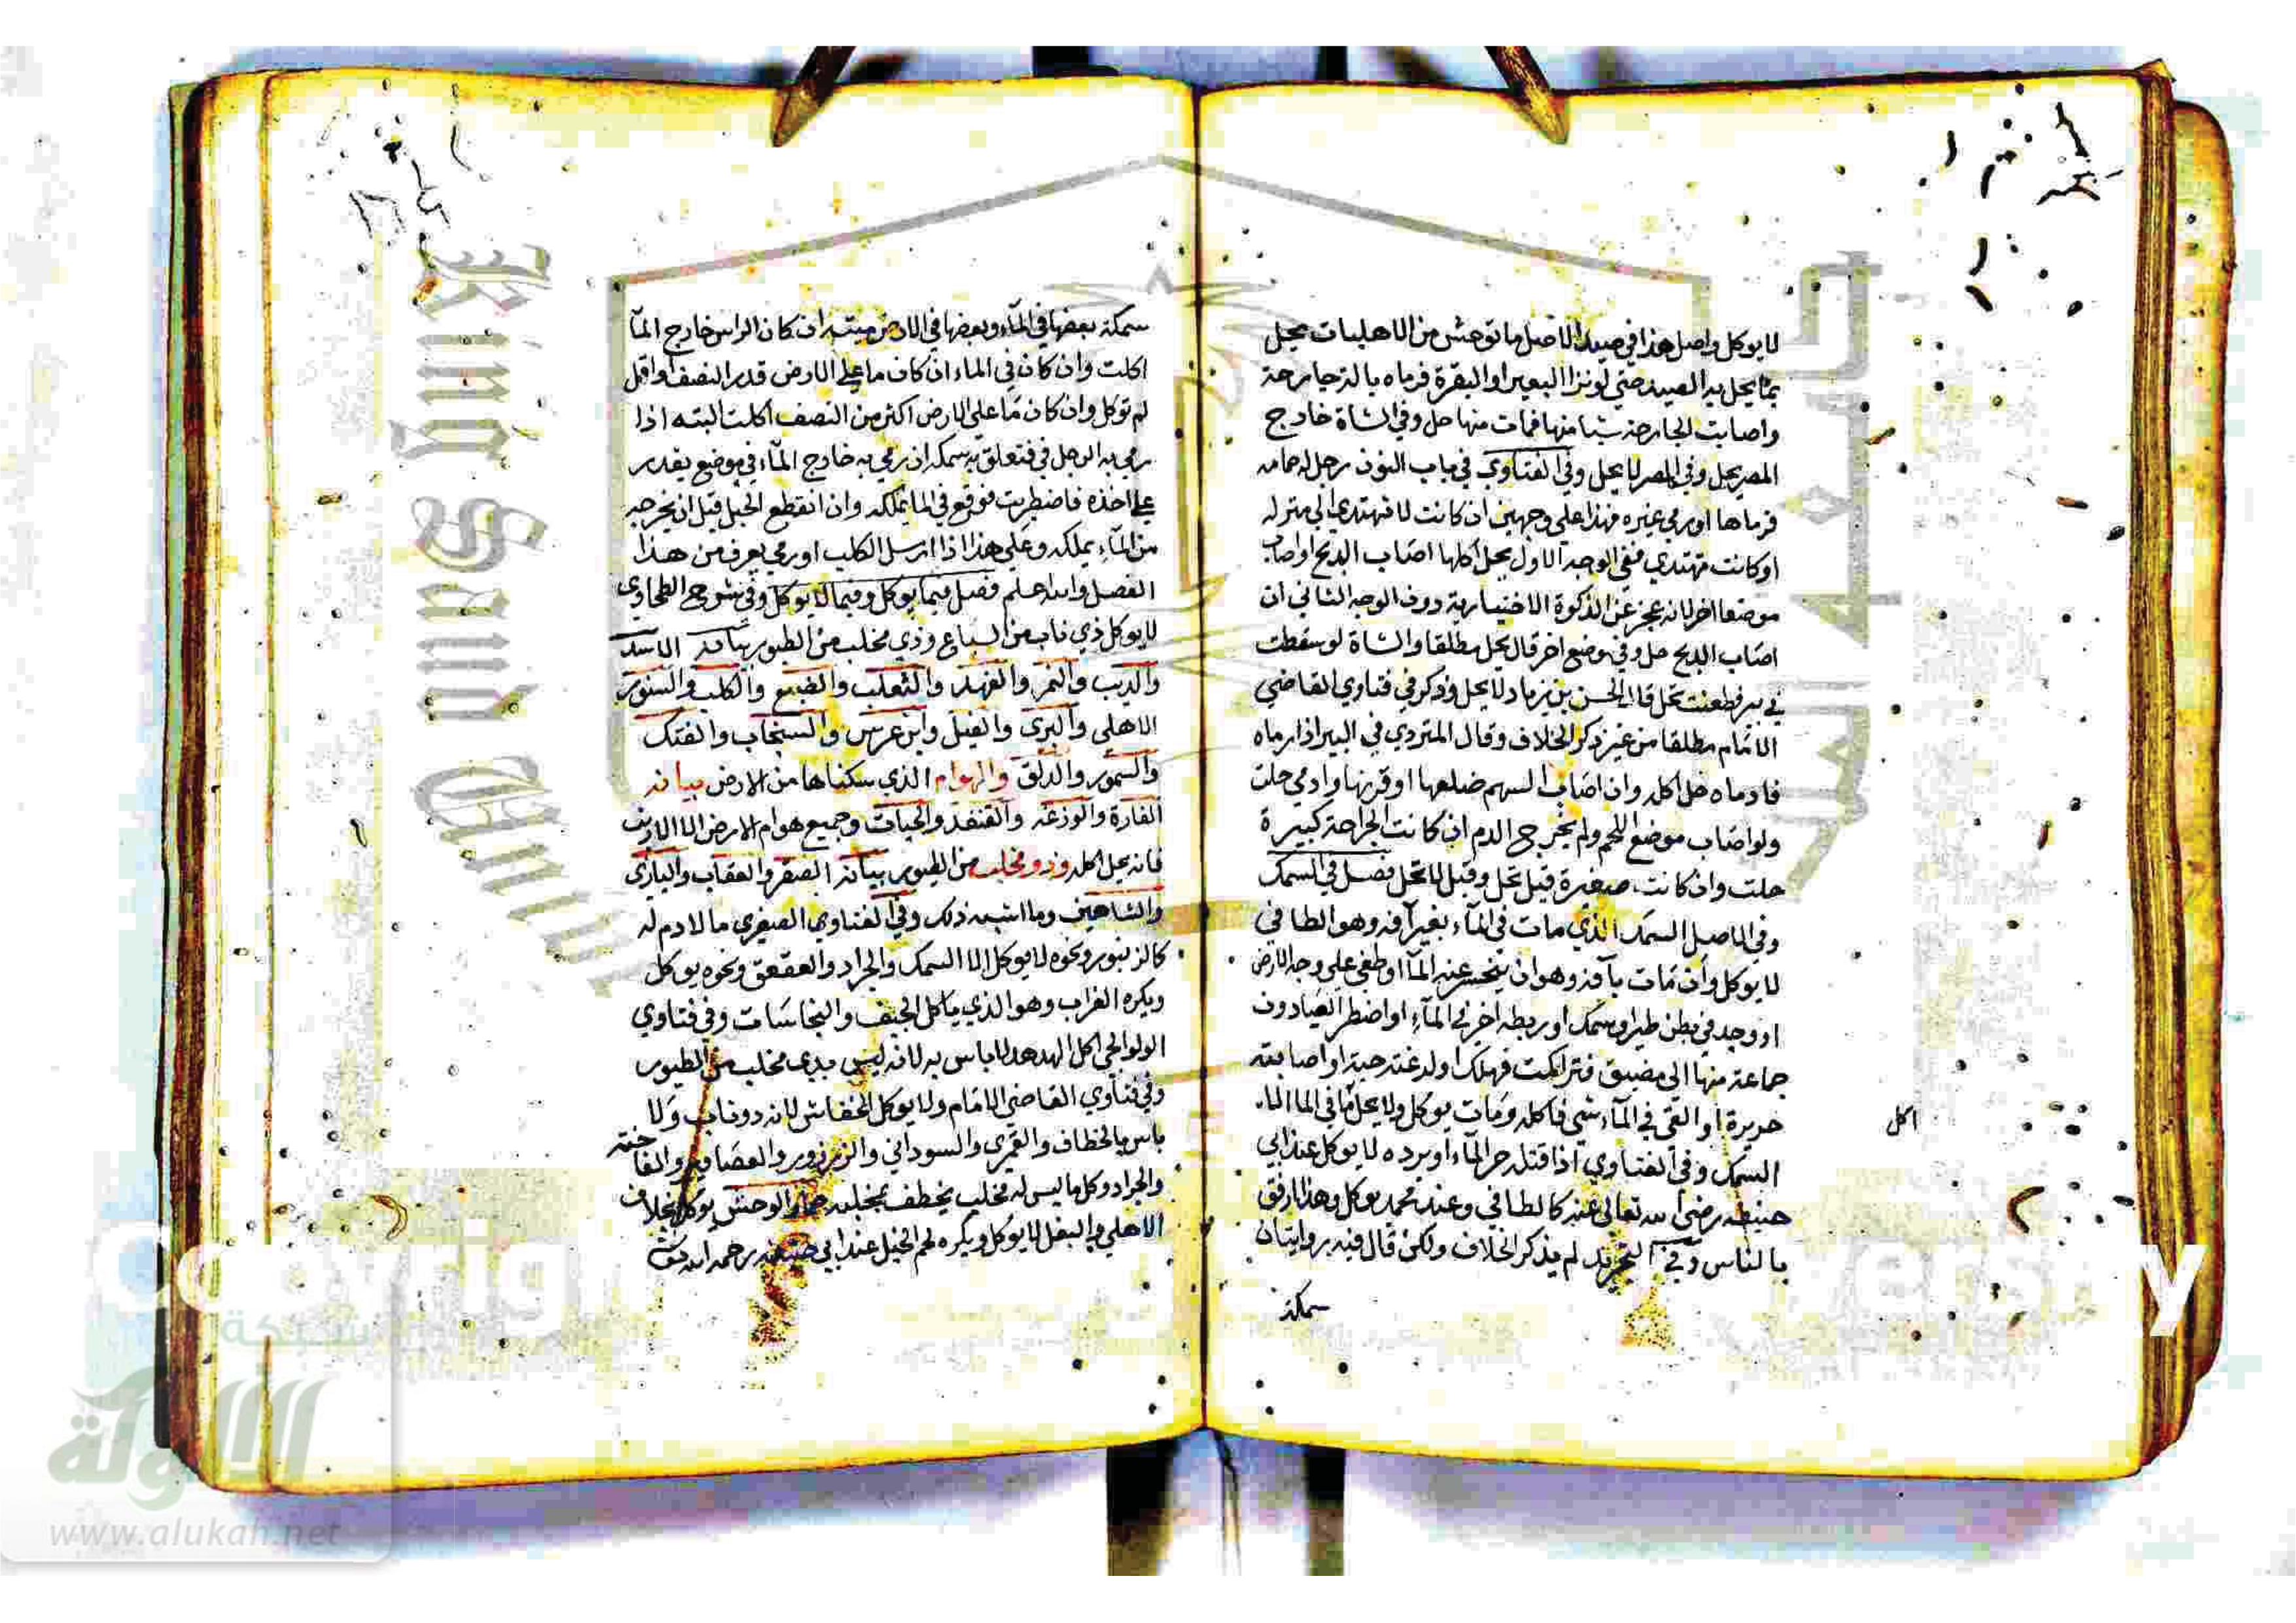 لا يوكل واصل هذا في صيد الاصل ما توحش من الاهليات يحل
بما يحل به الصيد حتى لو ند البعير او البقرة فرماه بالة جارحة
واصابت الجارحة شيا منها فمات منها حل وفي الشاة خارج
المصر يحل وفي المصر لا يحل وفي الفتاوي في باب النون رجل له حمامه
فرماها او رمي غيره فهذا علي وجهين ان كانت لا تهتدي الي منزله
او كانت تهتدي ففي الوجه الاول يحل اكلها اصاب الذبح او اصاب
موضعا اخر لانه عجز عن الذكوة الاختيارية دون الوجه الثاني ان
اصاب الذبح حل وفي موضع اخر قال يحل مطلقا والشاة لو سقطت
في بير فطعنت تحل قال الحسن بن زياد لا يحل وذكر في فتاوي القاضي
الامام مطلقا من غير ذكر الخلاف وقال المتردي في البير اذا رماه
فادماه حل اكله وان اصاب السهم ضلعها او قرنها وادمي حلت
ولو اصاب موضع اللحم ولم يخرج الدم ان كانت الجراحة كبيرة
حلت وان كانت صغيرة قيل تحل وقيل لا تحل فصل في السمك
وفي الاصل السمك الذي مات في المآء بغير آفة وهو الطافي
لا يوكل وان مات بآفة وهو ان ينحسر عنه المآ او طفي علي وجه الارض
او وجد في بطن طير او سمك او ربطه اخر في المآء او اضطر الصيادون
جماعة منها الي مضيق فتراكمت فهلك او لدغته حية او اصابته
حديدة او القي في المآء شي فاكله ومات يوكل ولا يحل ما في الما الا
اكل
السمك وفي الفتاوي اذا قتله حر المآء او برده لا يوكل عند ابي
حنيفة رضي الله تعالى عنه كالطافي وعند محمد يوكل وهذا ارفق
بالناس وفي التجريد لم يذكر الخلاف ولكن قال فيه روايتان
سمكة
سمكة بعضها في المآء وبعضها في الارض ميتة ان كان الراس خارج المآ
اكلت وان كان في الماء ان كان ما علي الارض قدر النصف او اقل
لم توكل وان كان ما علي الارض اكثر من النصف اكلت البته اذا
رمي به الرجل في فتعلق به سمكه ان رمي به خارج المآء في موضع يقدر
علي اخذه فاضطربت فوقع في الما يملكه وان انقطع الحبل قبل ان يخرجه
من المآء يملكه وعلي هذا اذا ارسل الكلب او رمي يعرف من هذا
الفصل والله اعلم فصل فيما يوكل وفيما لا يوكل وفي شروح الطحاوي
لا يوكل ذي ناب من السباع وذي مخلب من الطيور بيانه الاسد
والذيب والنمر والفهد والثعلب والضبع والكلب والسنور
الاهلي والبري والفيل وابن عرس والسنجاب والفنك
والسمور والدلق والهوام الذي سكناها من الارض بيانه
الفارة والوزغه والقنفد والحيات وجميع هوام الارض الا الارنب
فانه يحل اكله وذو مخلب من الطيور بيانه الصقر والعقاب والبازي
والشاهين وما اشبه ذلك وفي الفتاوي الصغري ما لا دم له
كالزنبور ونحوه لا يوكل الا السمك والجراد والعقعق ونحوه يوكل
ويكره الغراب وهو الذي ياكل الجيف والنجاسات وفي فتاوي
الولوالجي اكل الهدهد لا باس به لانه ليس بذي مخلب من الطيور
وفي فتاوي القاضي الامام ولا يوكل الخفاش لانه ذو ناب ولا
باس بالخطاف والقمري والسوداني والزرزور والعصافير والفاختة
والجراد وكل ما ليس له مخلب يخطف بمخلبه حمار الوحش يوكل بخلاف
الاهلي والبغل لا يوكل ويكره لحم الخيل عند ابي حنيفة رحمه الله
King Saud
copyrig
ersity
شبكة
الألوكة
www.alukah.net